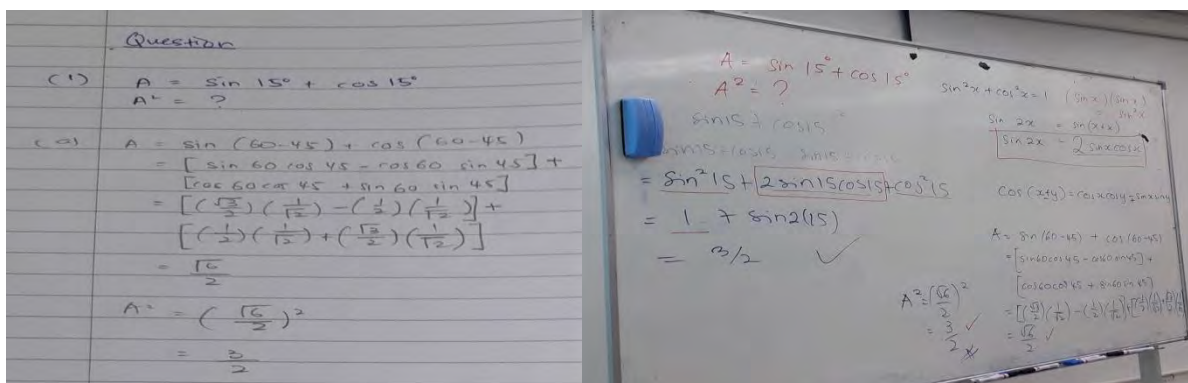 Question
(1) A = sin 15° + cos 15°
A² = ?
A = sin (60-45) + cos (60-45)
= [sin 60 cos 45 - cos 60 sin 45] +
[cos 60 cos 45 + sin 60 sin 45]
= [(√3/2)(1/√2) - (1/2)(1/√2)] +
[(1/2)(1/√2) + (√3/2)(1/√2)]
= √6/2
A² = (√6/2)²
= 3/2
A = sin 15° + cos 15°
A² = ?
sin15 + cos15
= sin²15 + 2sin15cos15 + cos²15
= 1 + sin2(15)
= 3/2 ✓
sin²x + cos²x = 1 (sinx)(sinx)
= sin²x
sin 2x = sin(x+x)
sin 2x = 2 sinx cosx
cos(x±y) = cosxcosy ∓ sinxsiny
A = sin(60-45) + cos(60-45)
= [sin60cos45 - cos60sin45] +
[cos60cos45 + sin60sin45]
= [(√3/2)(1/√2) - (1/2)(1/√2)] + [(1/2)(1/√2) + (√3/2)(1/√2)]
= √6/2 ✓
A² = (√6/2)²
= 3/2 ✓